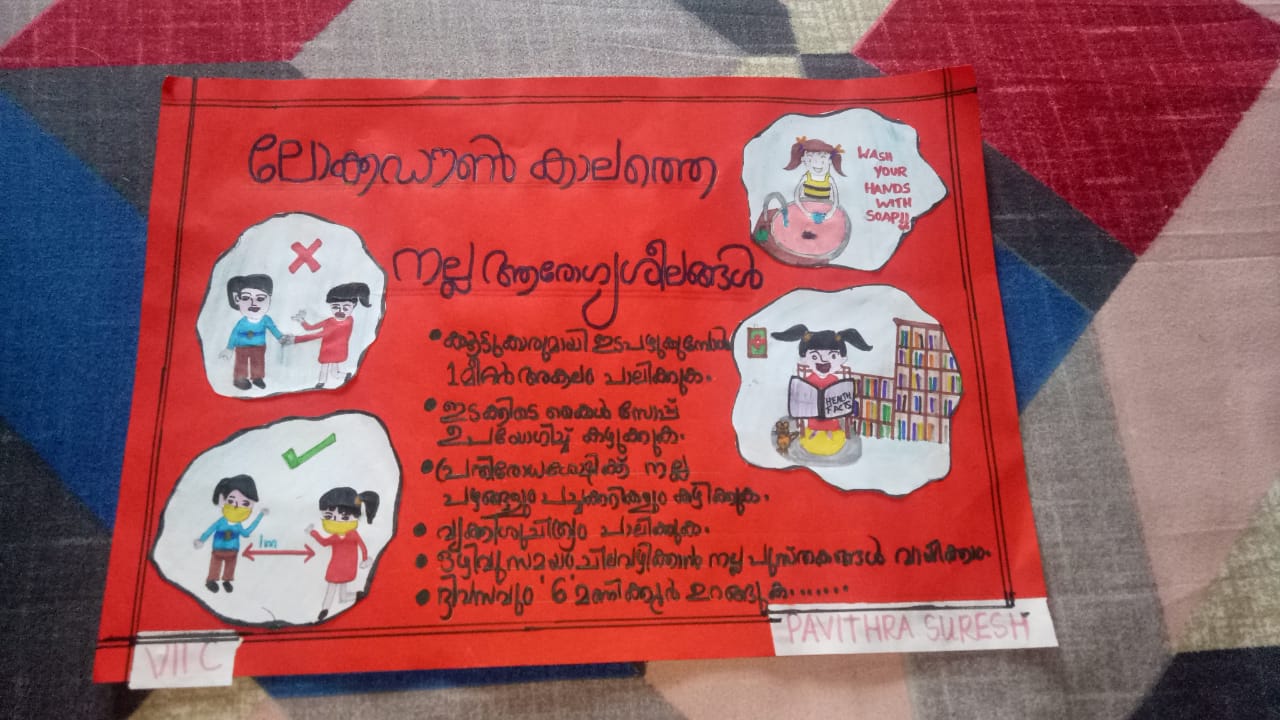 ലോക്ഡൗൺ കാലത്തെ
നല്ല ആരോഗ്യശീലങ്ങൾ
• കൂട്ടുകാരുമായി ഇടപഴുകുമ്പോൾ
1മീറ്റർ അകലം പാലിക്കുക.
• ഇടക്കിടെ കൈകൾ സോപ്പ്
ഉപയോഗിച്ച് കഴുക്കുക.
• പ്രതിരോധശേഷിക്ക് നല്ല
പഴങ്ങളും പച്ചക്കറികളും കഴിക്കുക.
• വ്യക്തിശുചിത്വം പാലിക്കുക.
• ഒഴിവുസമയം ചിലവഴിക്കാൻ നല്ല പുസ്തകങ്ങൾ വായിക്കാം.
• ദിവസവും '6' മണിക്കൂർ ഉറങ്ങുക.......
WASH
YOUR
HANDS
WITH
SOAP!!
HEALTH
FACTS
1m
VII C
PAVITHRA SURESH